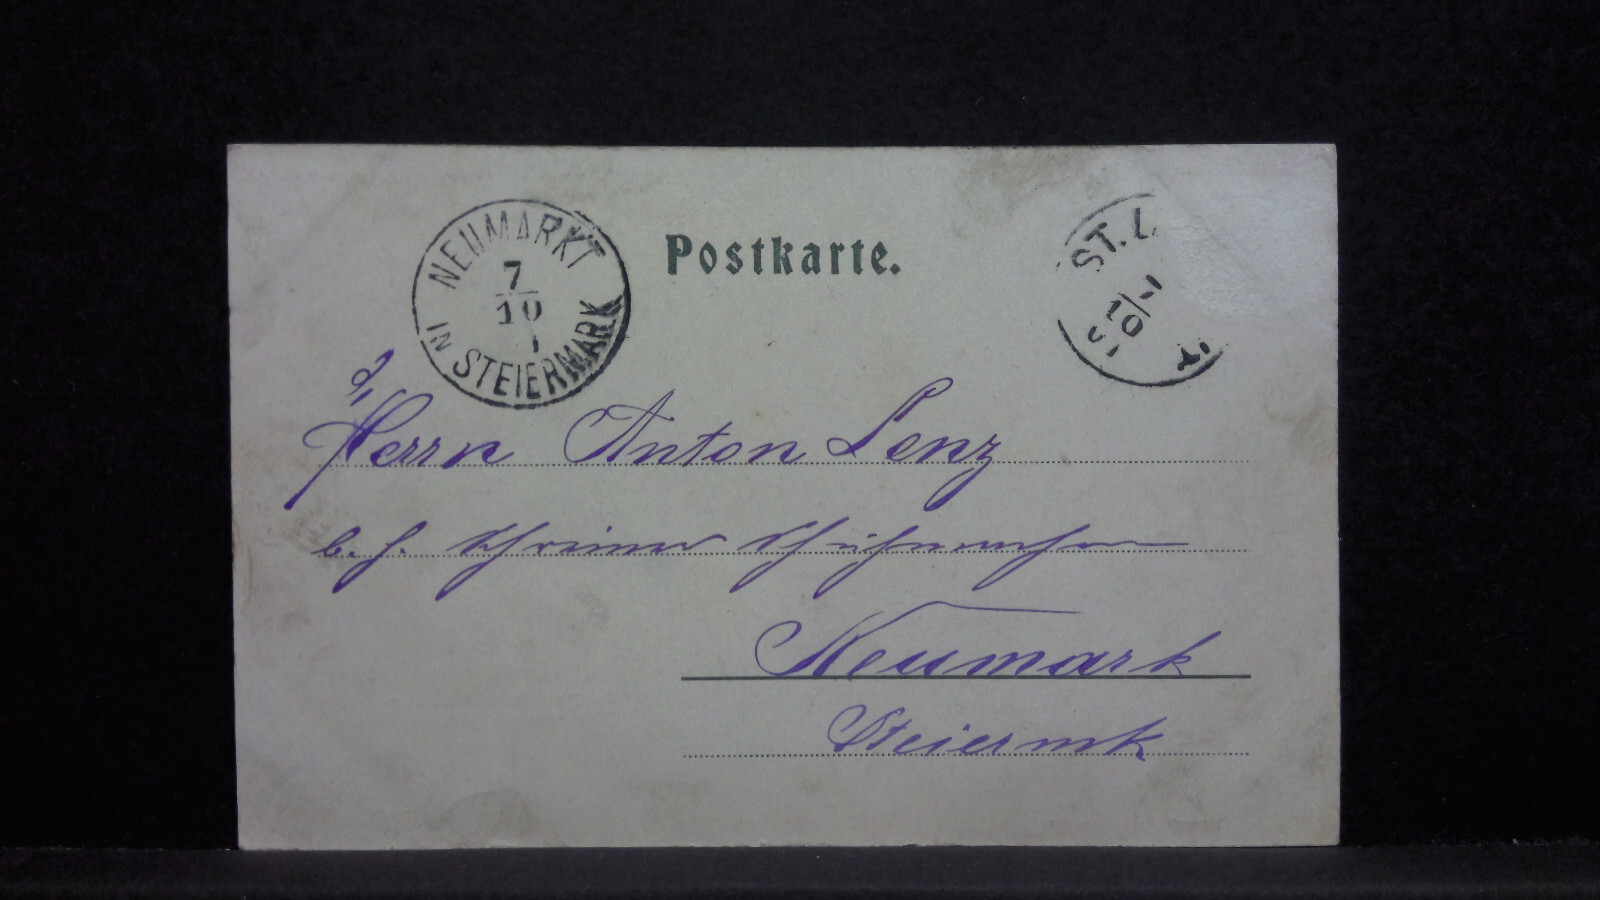 NEUMARKT
7
10
1
IN STEIERMARK
Postkarte.
ST. L
10
Herrn Anton Lenz
b. H.
Neumark
Steiermk